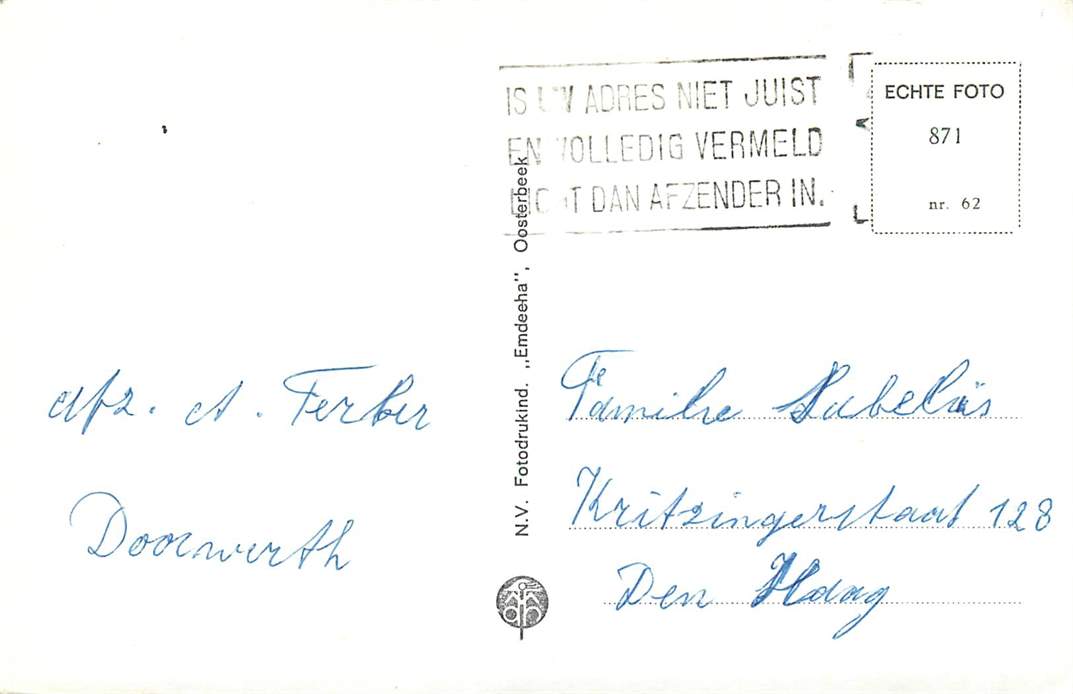 IS UW ADRES NIET JUIST
EN VOLLEDIG VERMELD
LICHT DAN AFZENDER IN.
ECHTE FOTO
871
nr. 62
N.V. Fotodrukind. „Emdeeha”, Oosterbeek
afz. A. Ferber
Doorwerth
Familie
Kritzingerstraat 128
Den Haag